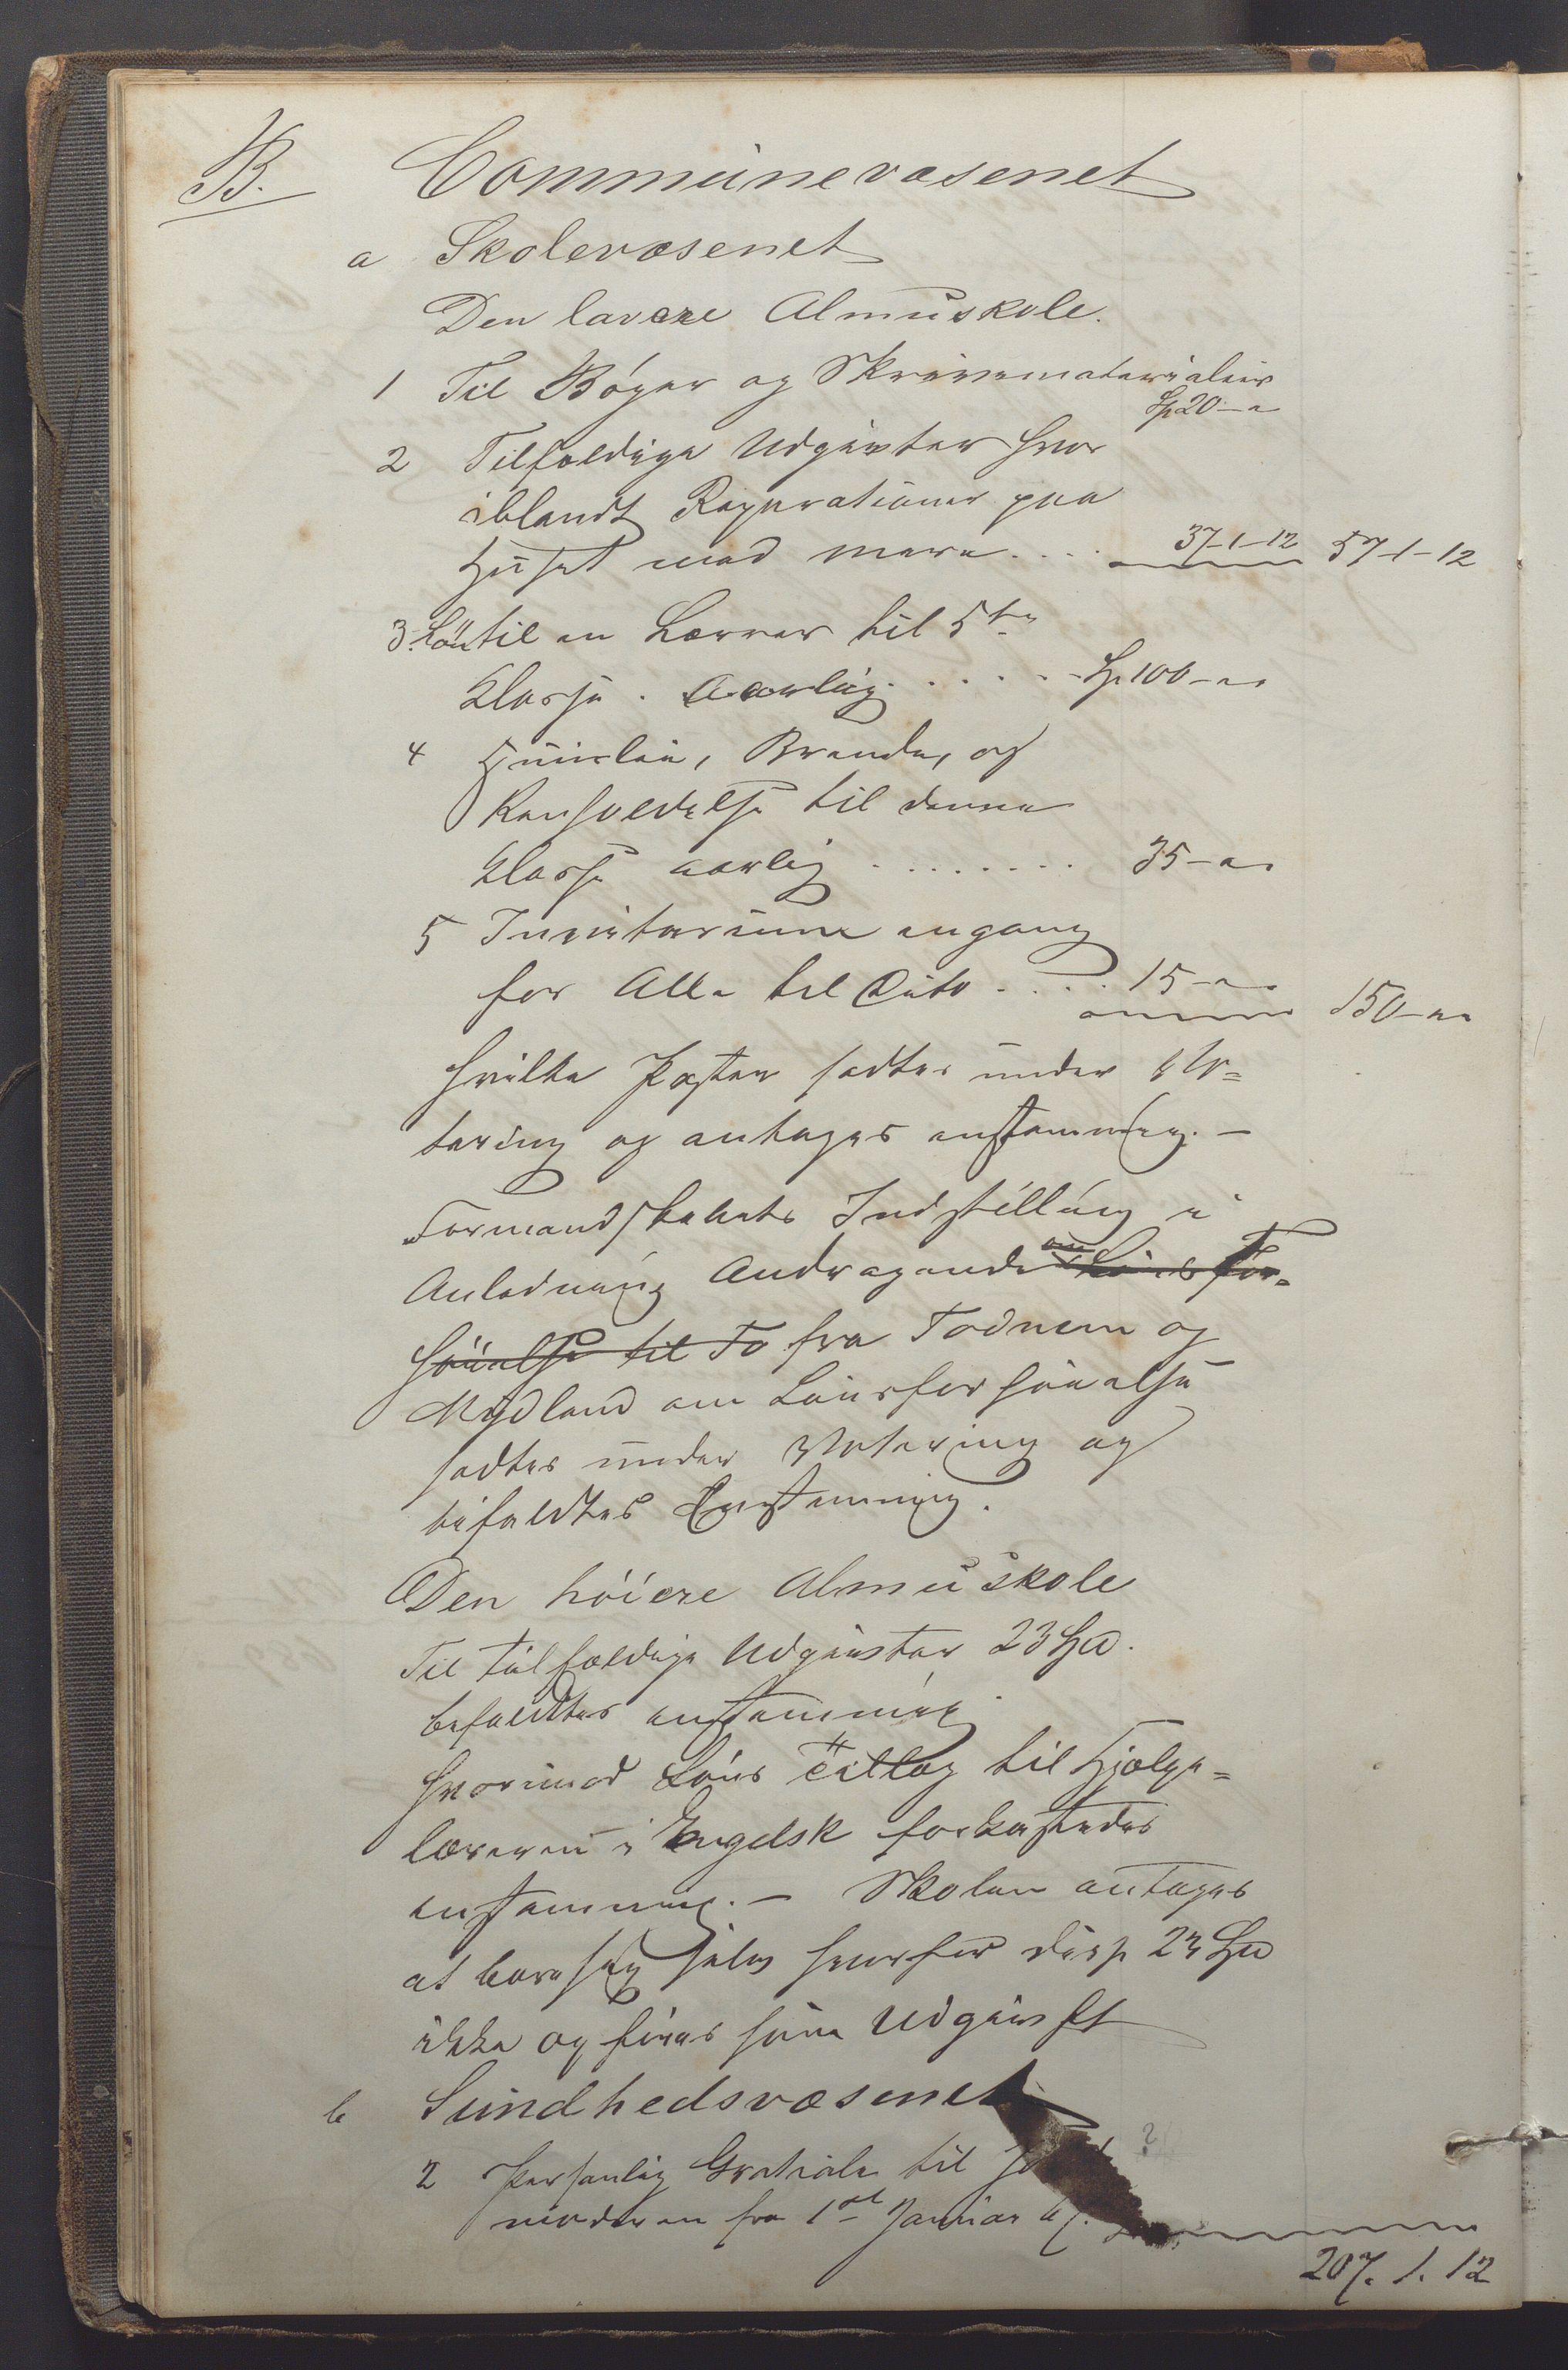 B. Communevæsenet
a Skolevæsenet
Den lavere Almuskole.
1 Til Bøger og Skrivematerialier
Sp 20 - "
2 Tilfældige Udgivter hvor
iblandt Reparationer paa
Huset med mere.... 37-1-12 57-1-12
3. Løn til en Lærer til 5te
Klasse. Aarlig...... Sp 100 - "
4 Huusleie, Brende, og
Renholdelse til denne
Klasse aarlig ........ 35 - "
5 Inventarium engang
for Alle til Dito ..... 15 - " 150 - "
hvilke Poster sadtes under Vo=
tering og antoges enstemmig. -
Formandskabets Indstilling i
Anledning Andragende om Løns for=
høielse til To fra Todnem og
Mydland om Lønsforhøielse
sadtes under Votering og
bifaldtes Enstemmig.
Den høiere Almuskole
Til tilfældige Udgivter 23 Spd.
bifaldtes enstemmig
hvorimod Løns Tillæg til Hjælpe=
læreren i Engelsk forkastedes
enstemmig. - Skolen antoges
at bære sig selv hvorfor disse 23 Spd
ikke opføres som Udgivt
b Sundhedsvæsenet
2 Personlig Gratiale til
moderen fra 1ste Januar
207. 1. 12